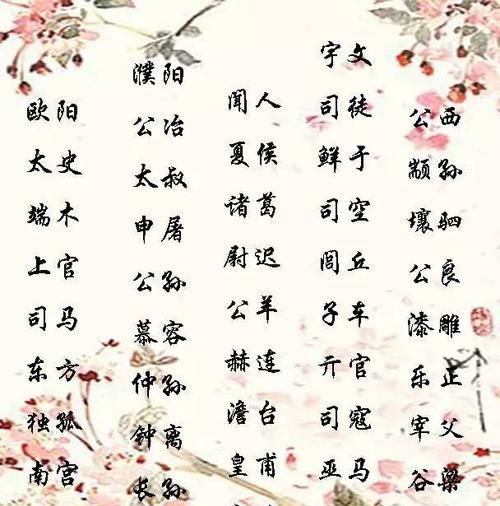 欧阳
太史
端木
上官
司马
东方
独孤
南宫
濮阳
公冶
太叔
申屠
公孙
慕容
仲孙
钟离
长孙
闻人
夏侯
诸葛
尉迟
公羊
赫连
澹台
皇甫
宇文
司徒
鲜于
司空
闾丘
子车
亓官
司寇
巫马
公西
颛孙
壤驷
公良
漆雕
乐正
宰父
谷梁